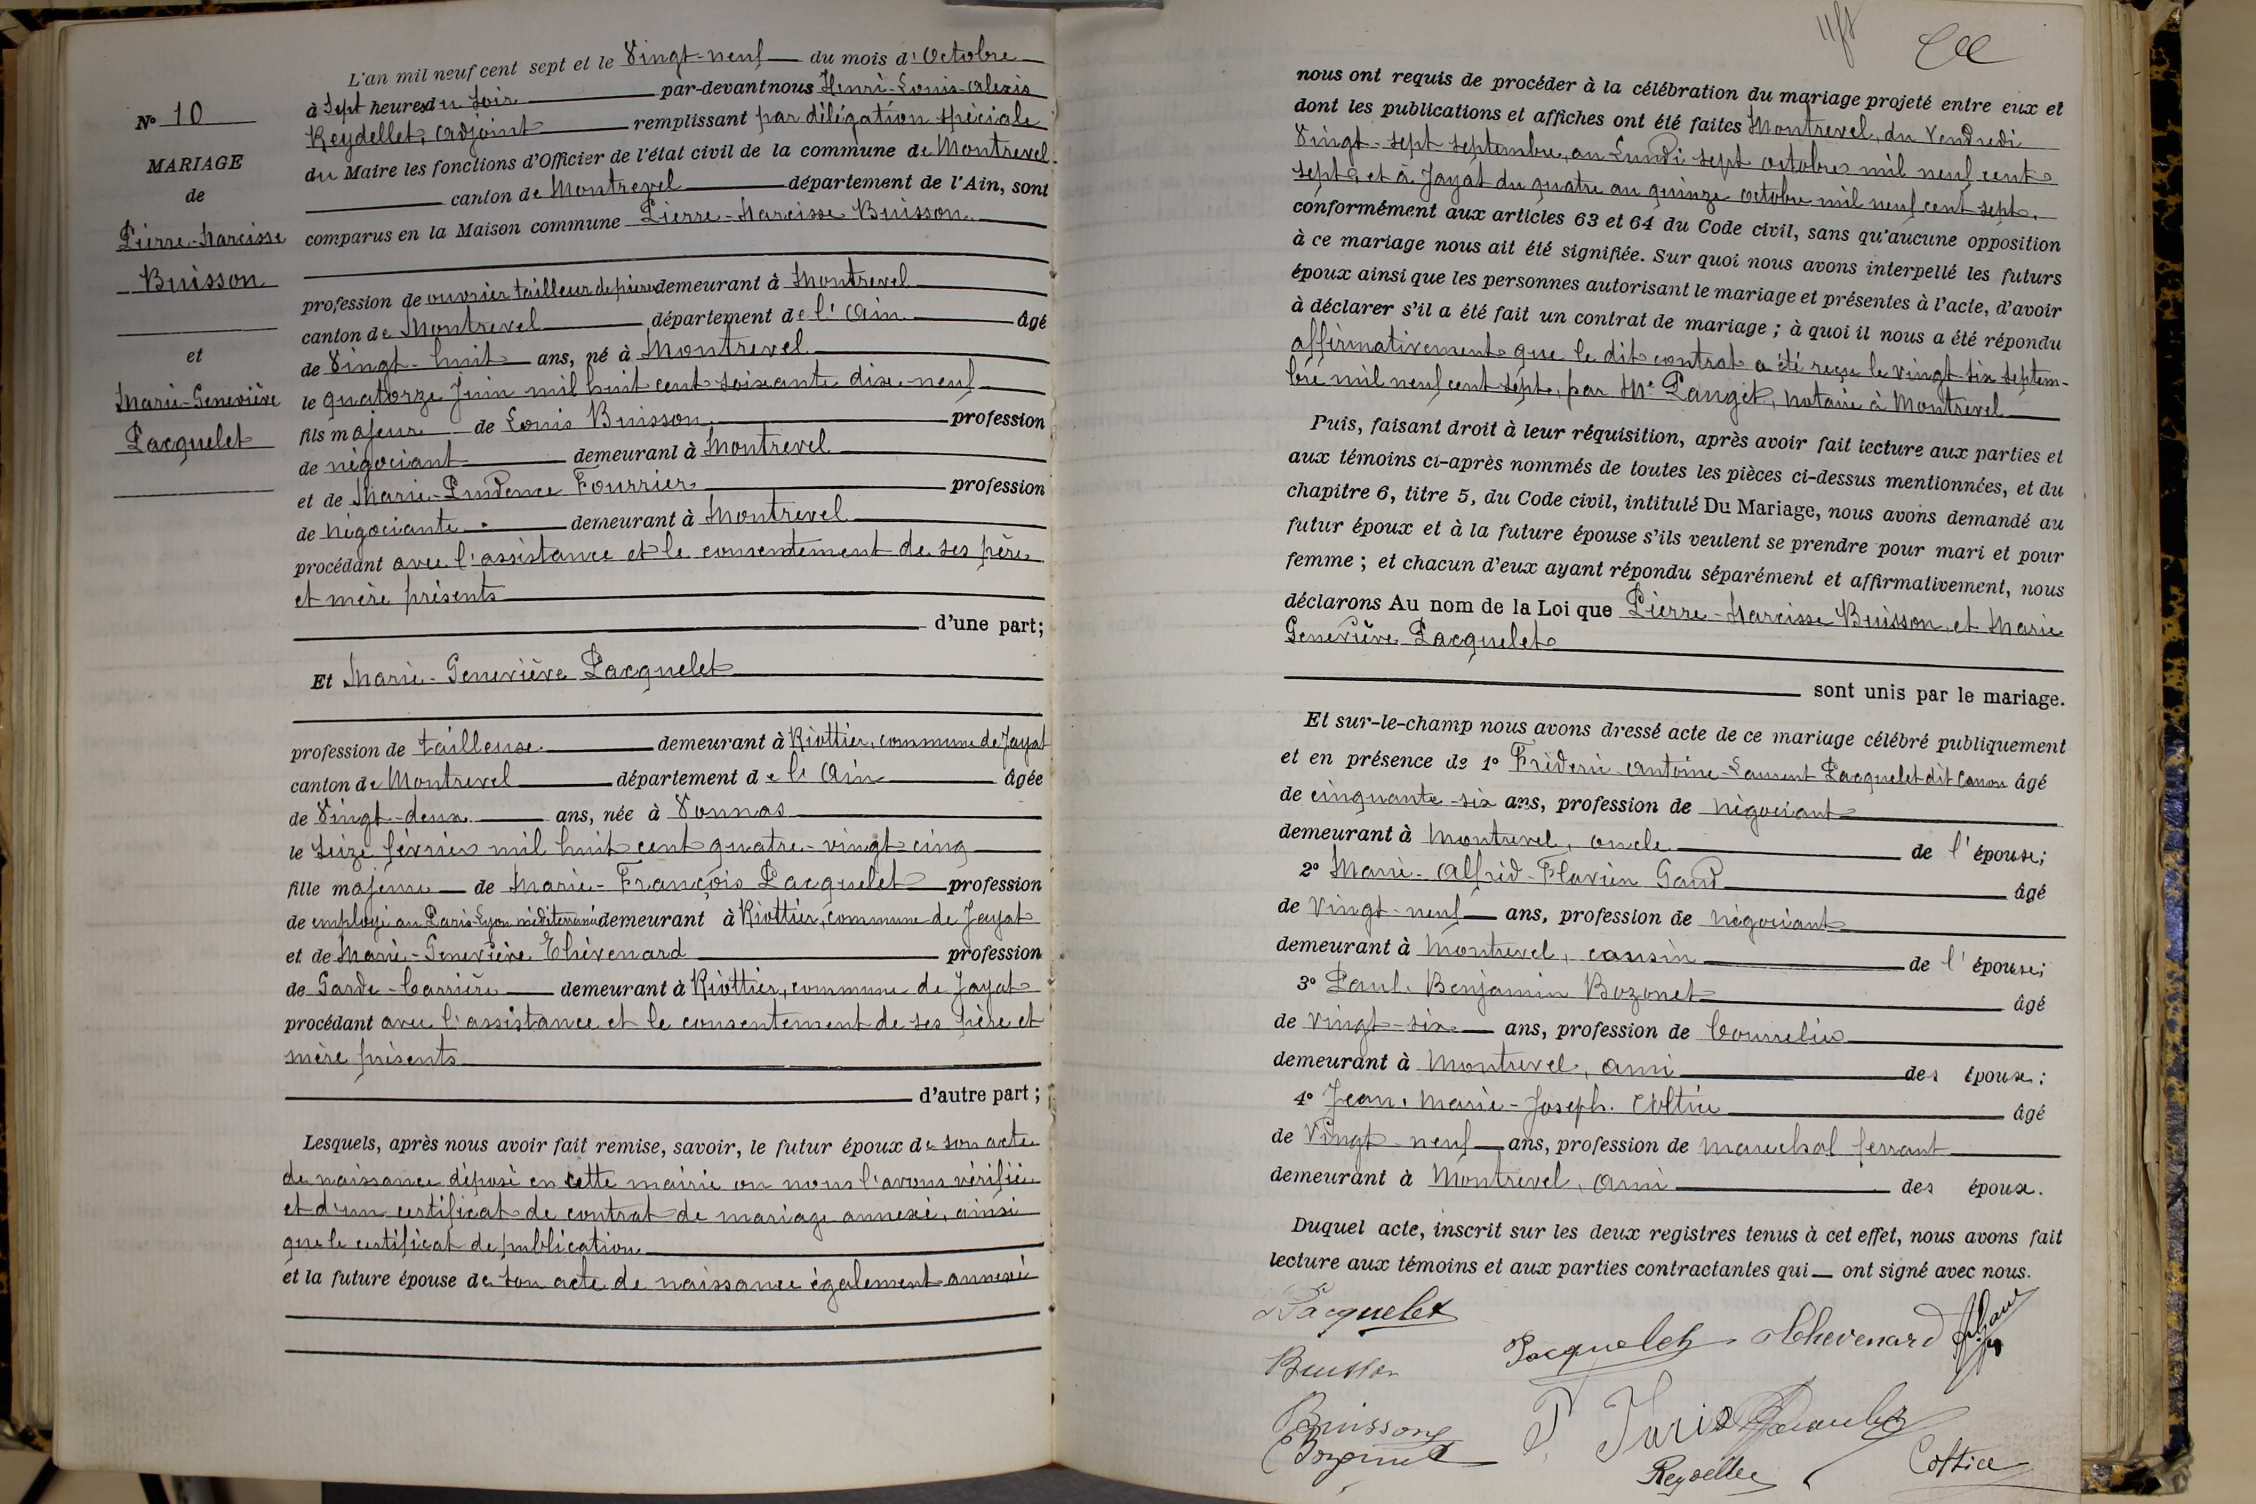 L'an mil neuf cent sept et le Vingt-neuf du mois d'Octobre
à Sept heures du soir par-devant nous Henri-Louis-Alexis
Reydellet, adjoint remplissant par délégation spéciale
du Maire les fonctions d'Officier de l'état civil de la commune de Montrevel
canton de Montrevel département de l'Ain, sont
comparus en la Maison commune Pierre-Narcisse Buisson
profession de ouvrier tailleur de pierre demeurant à Montrevel
canton de Montrevel département de l'Ain âgé
de Vingt-huit ans, né à Montrevel
le quatorze Juin mil huit cent soixante dix-neuf
fils majeur de Louis Buisson profession
de négociant demeurant à Montrevel
et de Marie-Prudence Fourrier profession
de négociante demeurant à Montrevel
procédant avec l'assistance et le consentement de ses père
et mère présents
d'une part;
Et Marie-Geneviève Pacquelet
profession de tailleuse demeurant à Riottier, commune de Jayat
canton de Montrevel département de l'Ain âgée
de Vingt-deux ans, née à Vonnas
le seize février mil huit cent quatre-vingt cinq
fille majeure de Marie-François Pacquelet profession
de employé au Paris-Lyon méditerrané demeurant à Riottier, commune de Jayat
et de Marie-Geneviève Thévenard profession
de Garde-barrière demeurant à Riottier, commune de Jayat
procédant avec l'assistance et le consentement de ses père et
mère présents
d'autre part;
Lesquels, après nous avoir fait remise, savoir, le futur époux de son acte
de naissance déposé en cette mairie ou nous l'avons vérifié
et d'un certificat de contrat de mariage annexé, ainsi
que le certificat de publication
et la future épouse de son acte de naissance également annexé
No 10
MARIAGE
de
Pierre-Narcisse
Buisson
et
Marie-Geneviève
Pacquelet
nous ont requis de procéder à la célébration du mariage projeté entre eux et
dont les publications et affiches ont été faites Montrevel, du Vendredi
Vingt-sept septembre, au Lundi sept octobre mil neuf cent
sept, et à Jayat du quatre au quinze octobre mil neuf cent sept.
conformément aux articles 63 et 64 du Code civil, sans qu'aucune opposition
à ce mariage nous ait été signifiée. Sur quoi nous avons interpellé les futurs
époux ainsi que les personnes autorisant le mariage et présentes à l'acte, d'avoir
à déclarer s'il a été fait un contrat de mariage ; à quoi il nous a été répondu
affirmativement que le dit contrat a été reçu le vingt six septem-
bre mil neuf cent sept, par Me Panget, notaire à Montrevel
Puis, faisant droit à leur réquisition, après avoir fait lecture aux parties et
aux témoins ci-après nommés de toutes les pièces ci-dessus mentionnées, et du
chapitre 6, titre 5, du Code civil, intitulé Du Mariage, nous avons demandé au
futur époux et à la future épouse s'ils veulent se prendre pour mari et pour
femme ; et chacun d'eux ayant répondu séparément et affirmativement, nous
déclarons Au nom de la Loi que Pierre-Narcisse Buisson et Marie
Geneviève Pacquelet
sont unis par le mariage.
Et sur-le-champ nous avons dressé acte de ce mariage célébré publiquement
et en présence de 1o Fréderic Antoine-Laurent Pacquelet dit Canon âgé
de cinquante-six ans, profession de négociant
demeurant à Montrevel, oncle de l'épouse;
2o Marie-Alfred-Flavien Gand âgé
de Vingt-neuf ans, profession de négociant
demeurant à Montrevel, cousin de l'épouse;
3o Paul-Benjamin Bozonet âgé
de Vingt-six ans, profession de bourrelier
demeurant à Montrevel, ami des époux;
4o Jean-Marie-Joseph Coltice âgé
de Vingt-neuf ans, profession de marechal ferrant
demeurant à Montrevel, ami des époux.
Duquel acte, inscrit sur les deux registres tenus à cet effet, nous avons fait
lecture aux témoins et aux parties contractantes qui ont signé avec nous.
Pacquelet
Pacquelet Thevenard
Buisson
Buisson
Reydellet Coltice